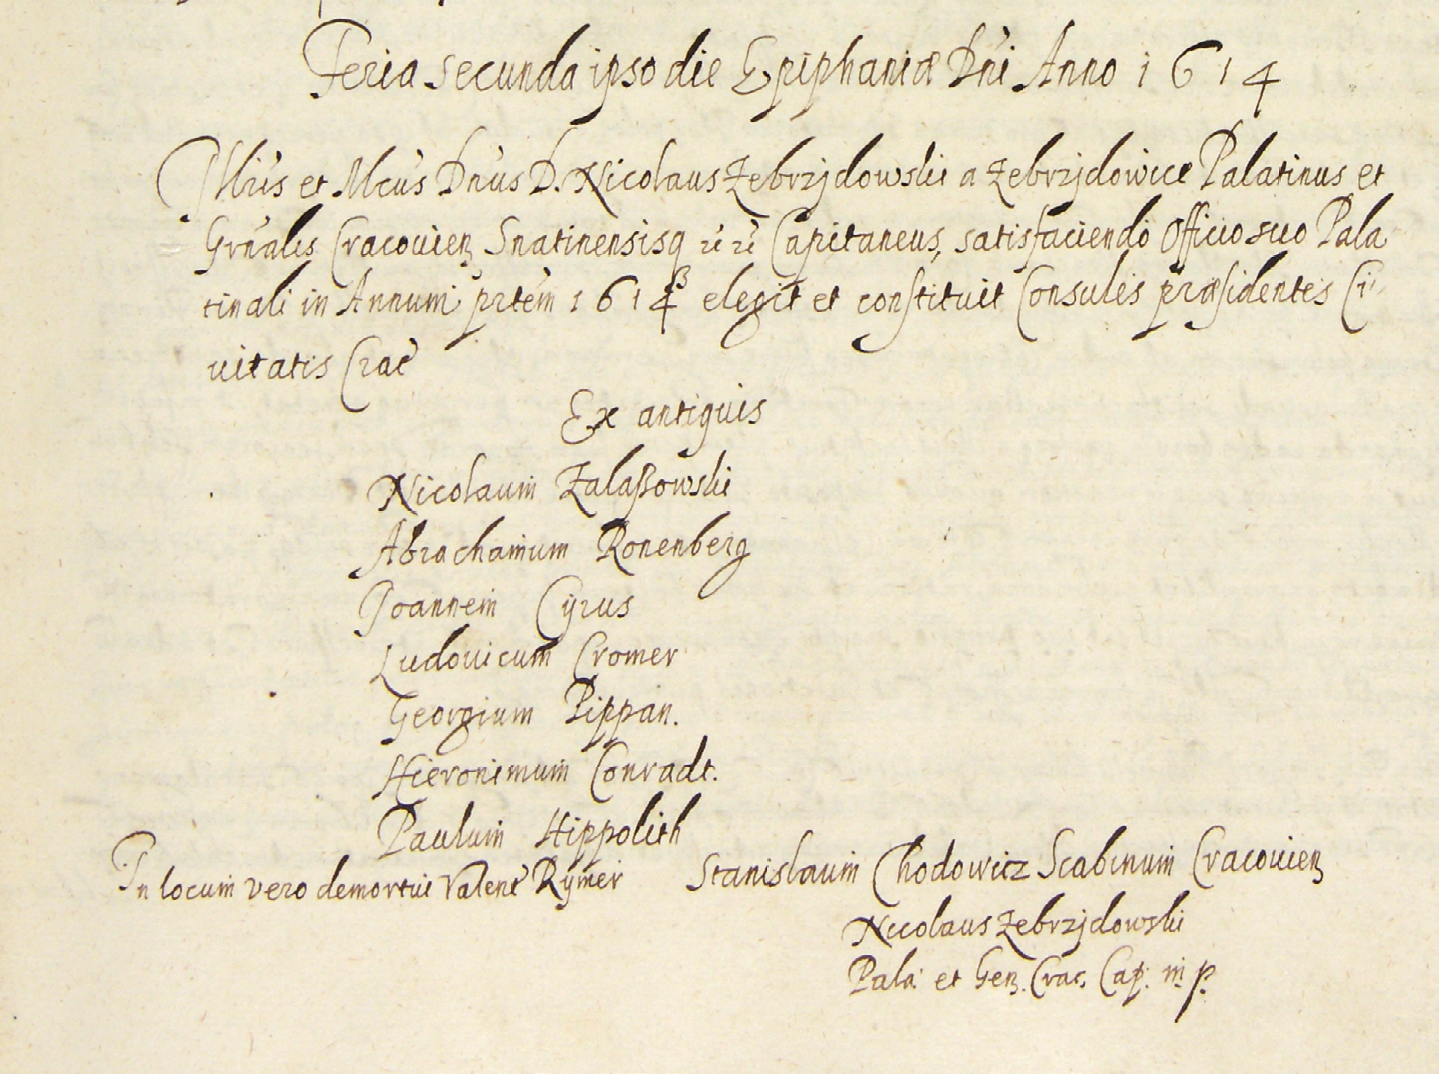 Feria secunda ipso die Epiphaniæ Dni Anno 1614
Illris et Mcus Dnus D. Nicolaus Zebrzjdowski a Zebrzjdowice Palatinus et
Grnalis Cracouien Snatinensisq Capitaneus, satisfaciendo Officio suo Pala
tinali in Annum prtem 1614 elegit et constituit Consules præsidentes Ci
uitatis Crac
Ex antiquis
Nicolaum Zalaßowski
Abrachamum Ronenberg
Joannem Cyrus
Ludouicum Cromer
Georgium Pippan.
Hieronimum Conradt.
Paulum Hippolith
In locum vero demortui Valent Rymer Stanislaum Chodowicz Scabinum Cracouien
Nicolaus Zebrzjdowski
Pala: et Gen. Crac. Cap. m p.